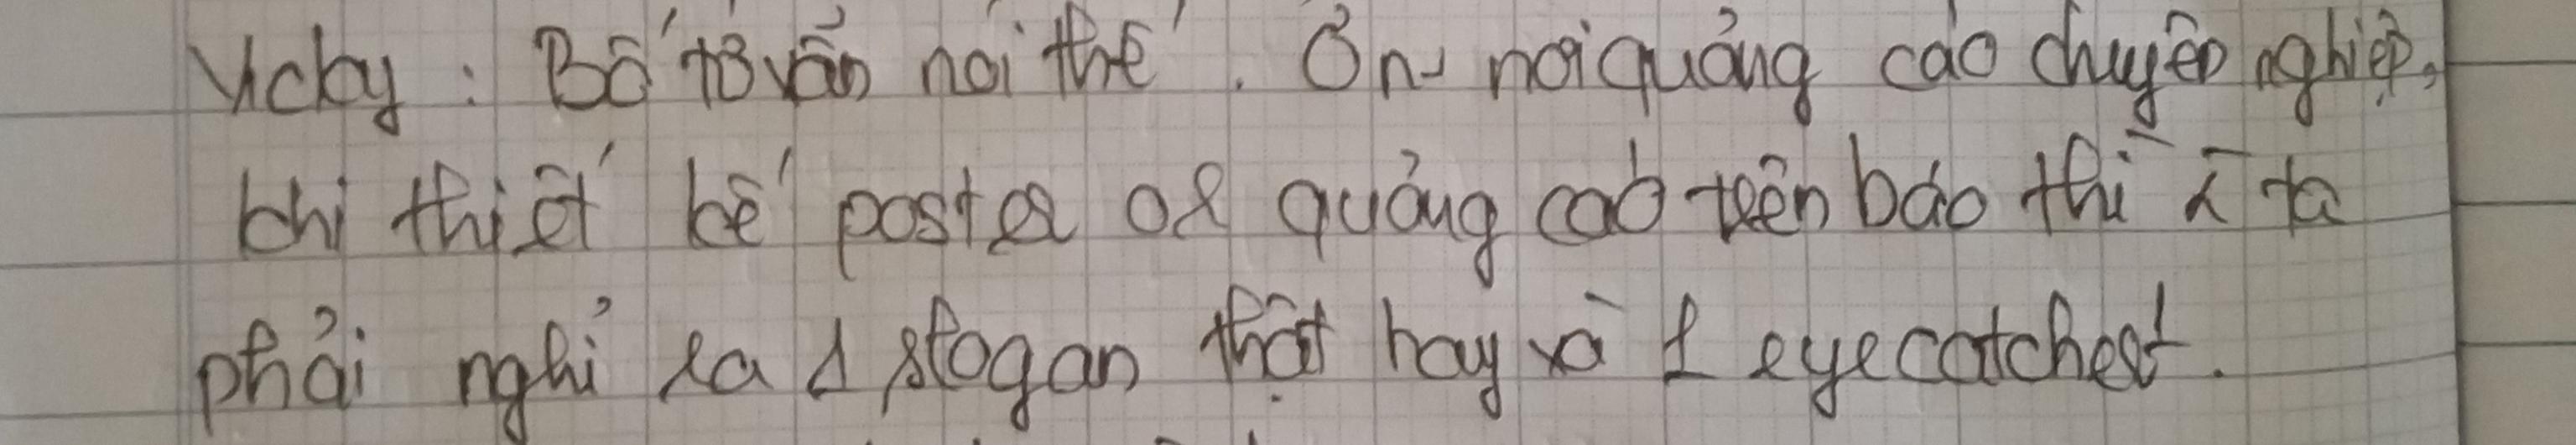 Vicky : Bố tớ vẫn nói thế. Ổn nói quảng cáo chuyên nghiệp,
khi thiết kế poster or quảng cáo trên báo thì ta
phải nghĩ ra 1 slogan thật hay và 1 eyecatcher.